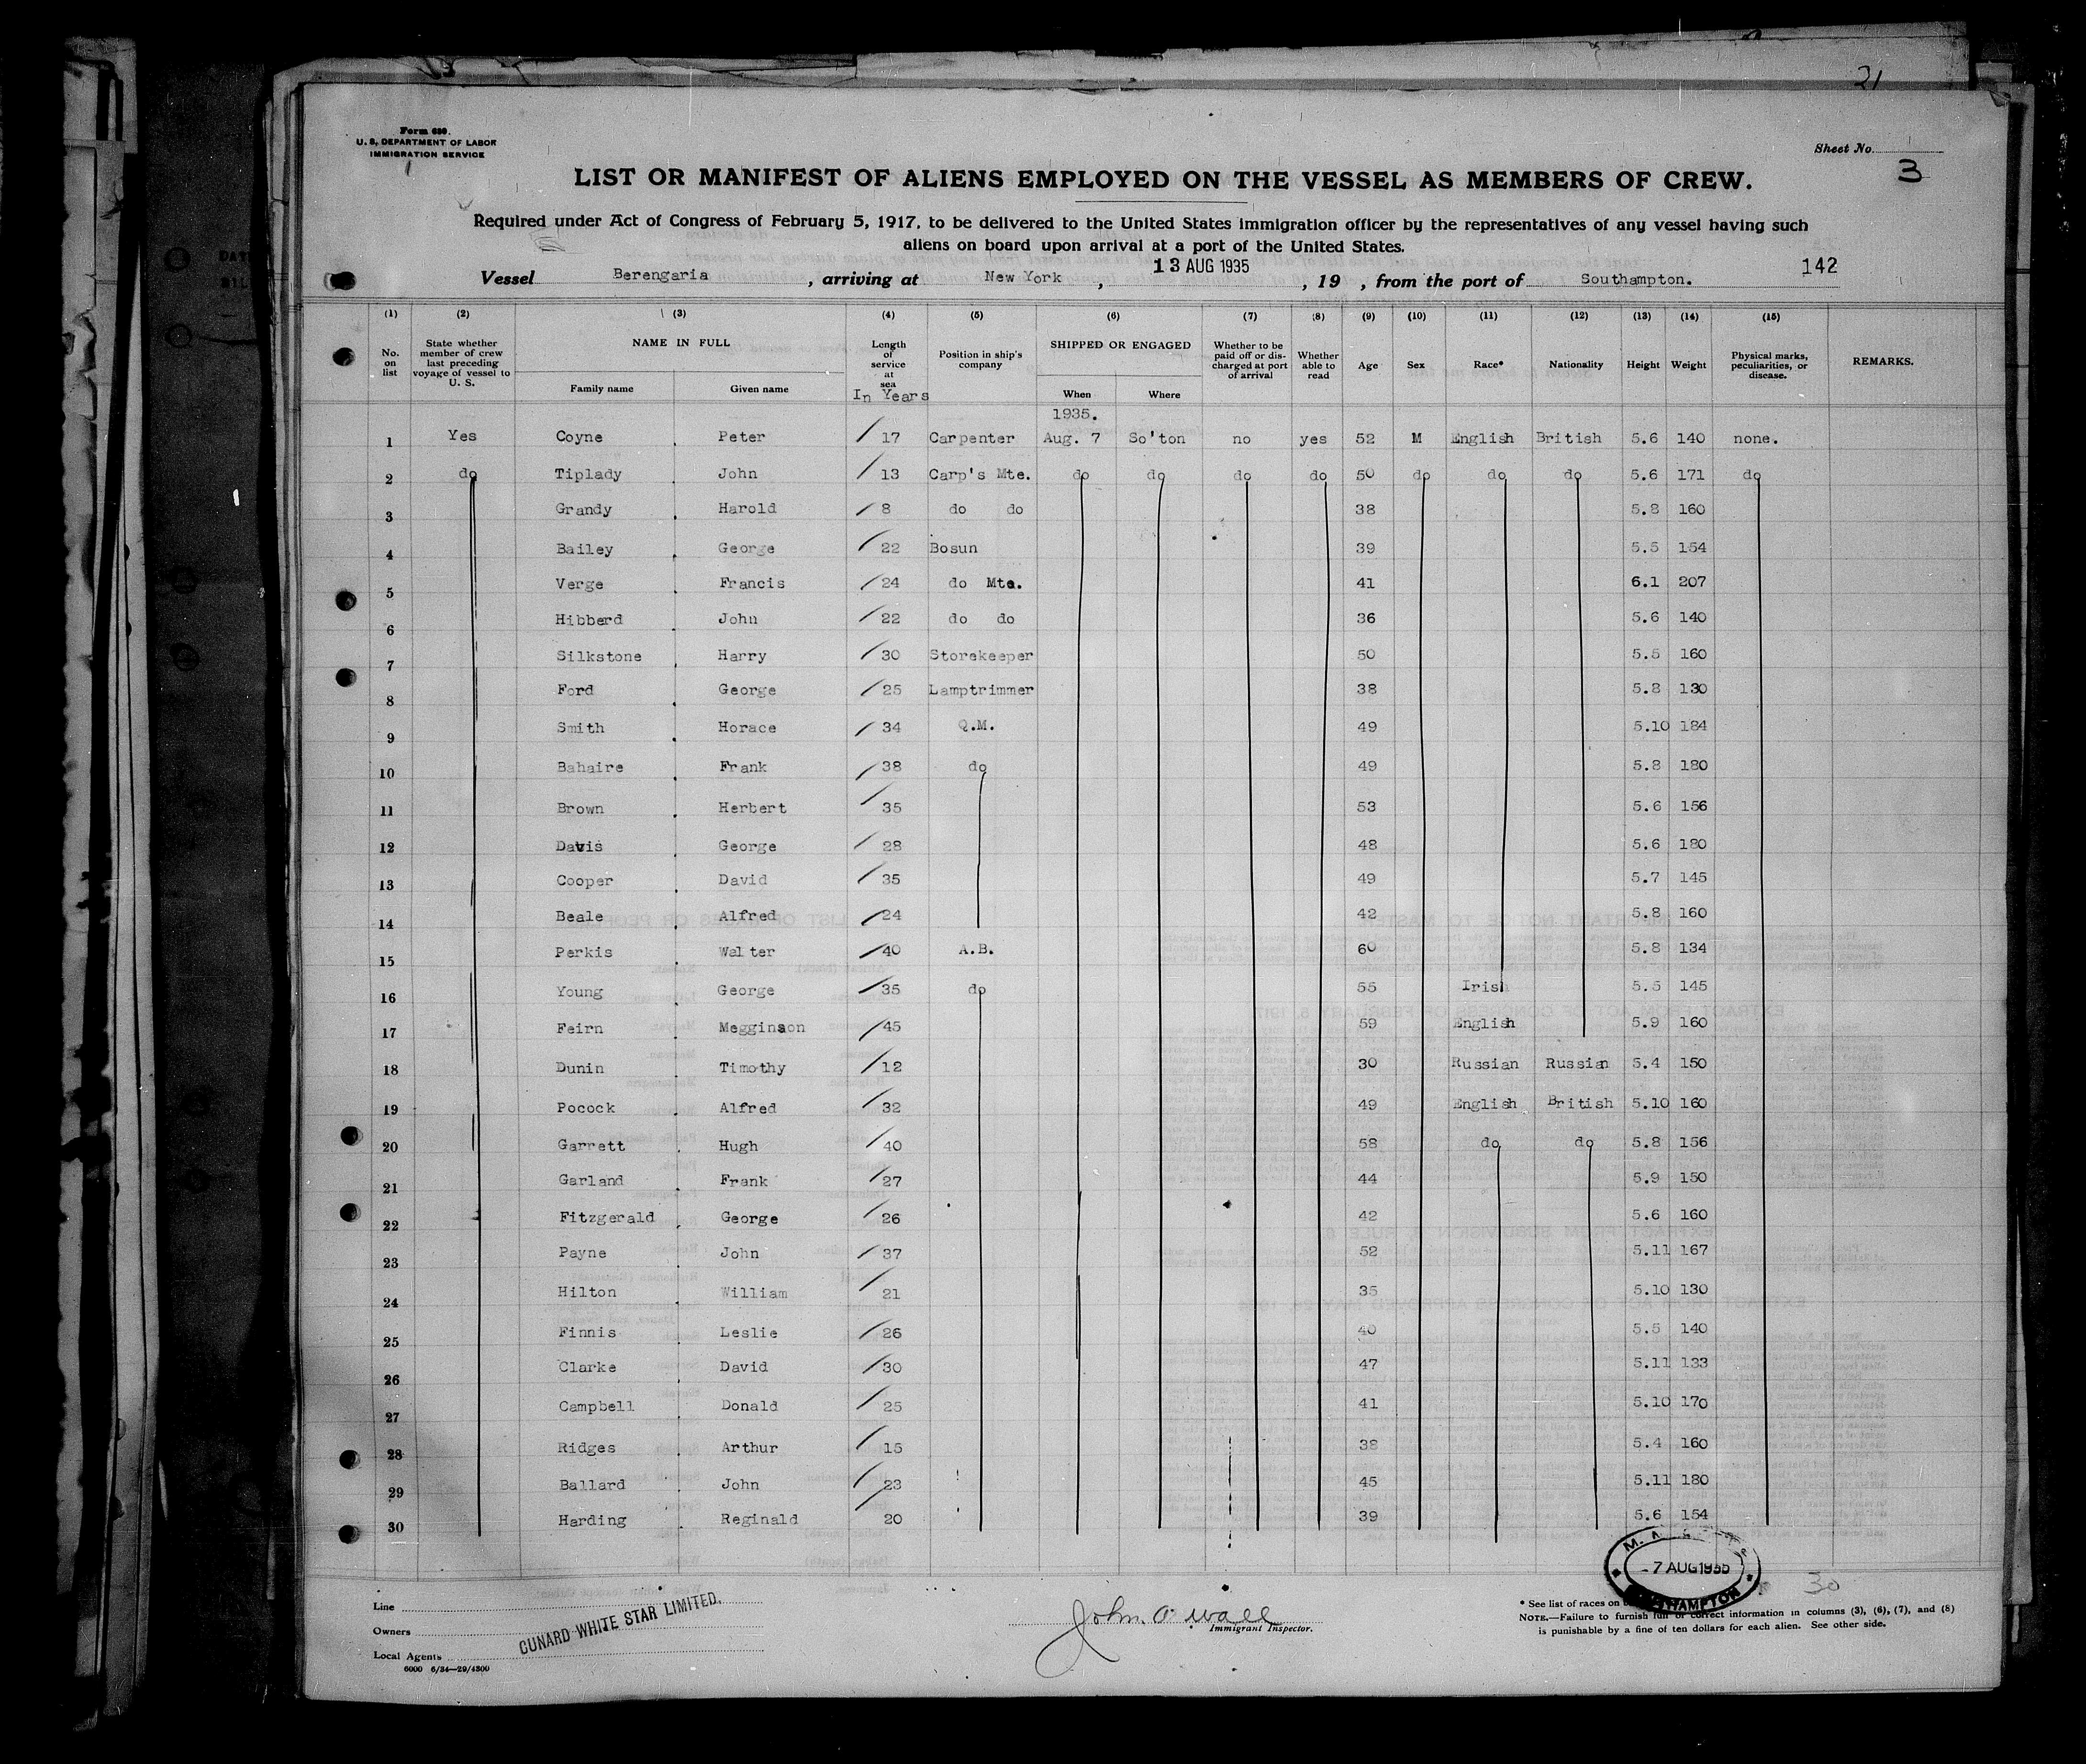 21
Form 680.
U. S. DEPARTMENT OF LABOR
IMMIGRATION SERVICE
Sheet No.
3
LIST OR MANIFEST OF ALIENS EMPLOYED ON THE VESSEL AS MEMBERS OF CREW.
Required under Act of Congress of February 5, 1917, to be delivered to the United States immigration officer by the representatives of any vessel having such
aliens on board upon arrival at a port of the United States.
Vessel Berengaria, arriving at New York, 13 AUG 1935, 19 , from the port of Southampton. 142
(1) (2) (3) (4) (5) (6) (7) (8) (9) (10) (11) (12) (13) (14) (15)
No. on list State whether member of crew last preceding voyage of vessel to U. S. NAME IN FULL Family name Given name Length of service at sea In Years Position in ship's company SHIPPED OR ENGAGED When Where Whether to be paid off or discharged at port of arrival Whether able to read Age Sex Race* Nationality Height Weight Physical marks, peculiarities, or disease. REMARKS.
1935.
1 Yes Coyne Peter 17 Carpenter Aug. 7 So'ton no yes 52 M English British 5.6 140 none.
2 do Tiplady John 13 Carp's Mte. do do do do 50 do do do 5.6 171 do
3 Grandy Harold 8 do do 38 5.8 160
4 Bailey George 22 Bosun 39 5.5 154
5 Verge Francis 24 do Mte. 41 6.1 207
6 Hibberd John 22 do do 36 5.6 140
7 Silkstone Harry 30 Storekeeper 50 5.5 160
8 Ford George 25 Lamptrimmer 38 5.8 130
9 Smith Horace 34 Q.M. 49 5.10 184
10 Bahaire Frank 38 do 49 5.8 180
11 Brown Herbert 35 53 5.6 156
12 Davis George 28 48 5.6 180
13 Cooper David 35 49 5.7 145
14 Beale Alfred 24 42 5.8 160
15 Perkis Walter 40 A.B. 60 5.8 134
16 Young George 35 do 55 Irish 5.5 145
17 Feirn Megginson 45 59 English 5.9 160
18 Dunin Timothy 12 30 Russian Russian 5.4 150
19 Pocock Alfred 32 49 English British 5.10 160
20 Garrett Hugh 40 58 do do 5.8 156
21 Garland Frank 27 44 5.9 150
22 Fitzgerald George 26 42 5.6 160
23 Payne John 37 52 5.11 167
24 Hilton William 21 35 5.10 130
25 Finnis Leslie 26 40 5.5 140
26 Clarke David 30 47 5.11 133
27 Campbell Donald 25 41 5.10 170
28 Ridges Arthur 15 38 5.4 160
29 Ballard John 23 45 5.11 180
30 Harding Reginald 20 39 5.6 154
-7 AUG 1935
SOUTHAMPTON
30
Line
Owners
Local Agents
CUNARD WHITE STAR LIMITED.
6000 6/34—29/4300
Immigrant Inspector.
* See list of races on
NOTE.—Failure to furnish full or correct information in columns (3), (6), (7), and (8)
is punishable by a fine of ten dollars for each alien. See other side.